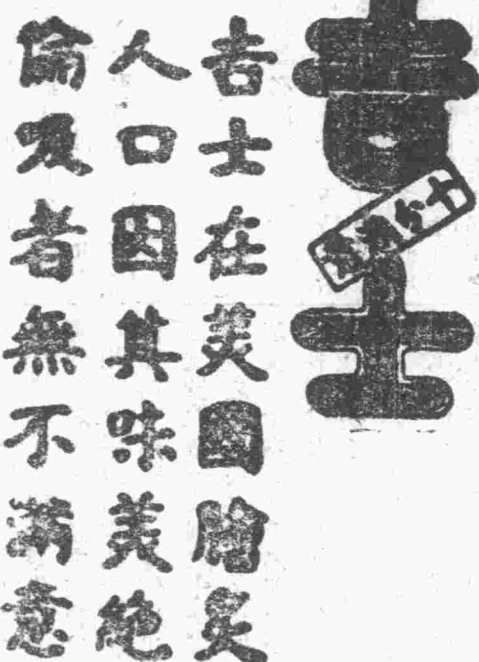 吉士
吉士在美國膾炙
人口因其味美絶
倫吸者無不滿意